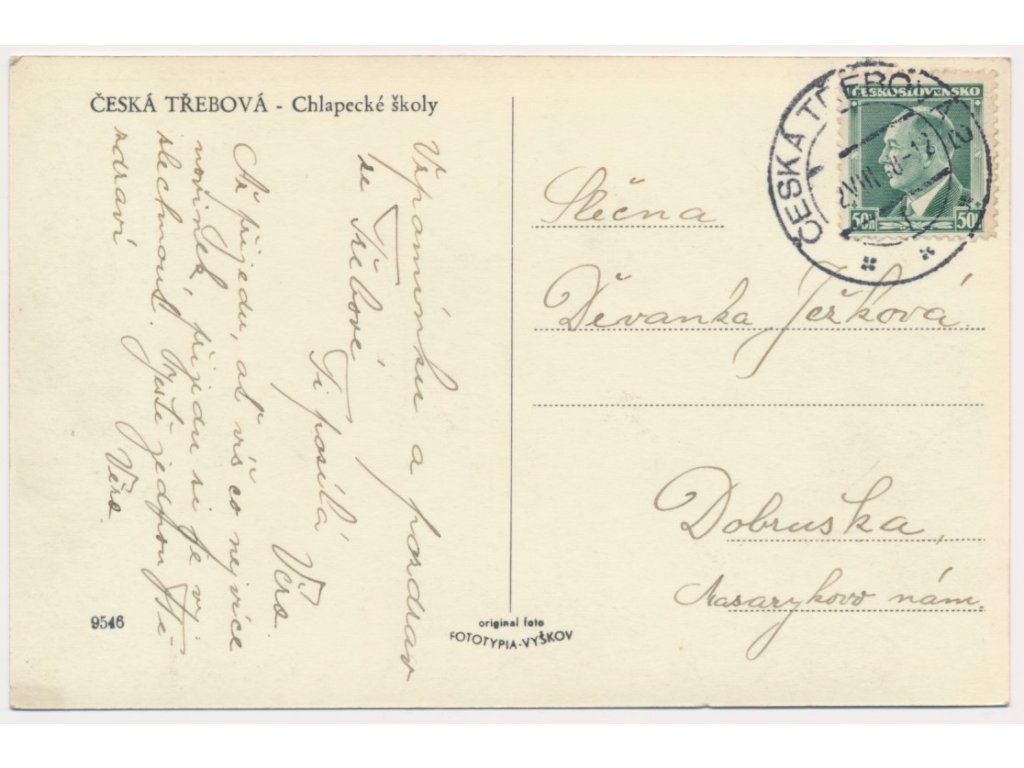 ČESKÁ TŘEBOVÁ - Chlapecké školy
Vzpomínku a pozdrav
ze Třebové
Ti posílá
Věra.
Až přijedu, ať víš co nejvíce
novinek, přijedu si je vy-
slechnout. Ještě jednou
zdraví
Věra.
9546
original foto
FOTOTYPIA-VYŠKOV
ČESKÁ TŘEBOVÁ
ČESKOSLOVENSKO
50H 50H
Slečna
Děvanka Ježková.
Dobruška,
Masarykovo nám.